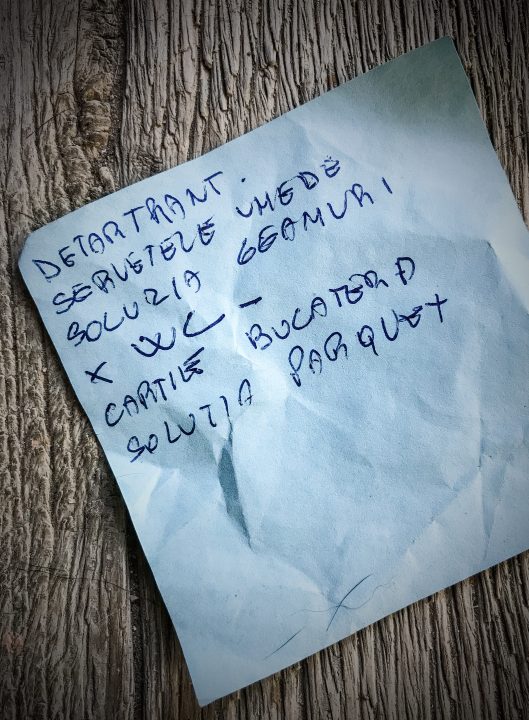 DETARTRANT.
SERVETELE UMEDE
SOLUZIA GEAMURI
x WC -
CARTILE BUCATERD
SOLUTIA PARQUET